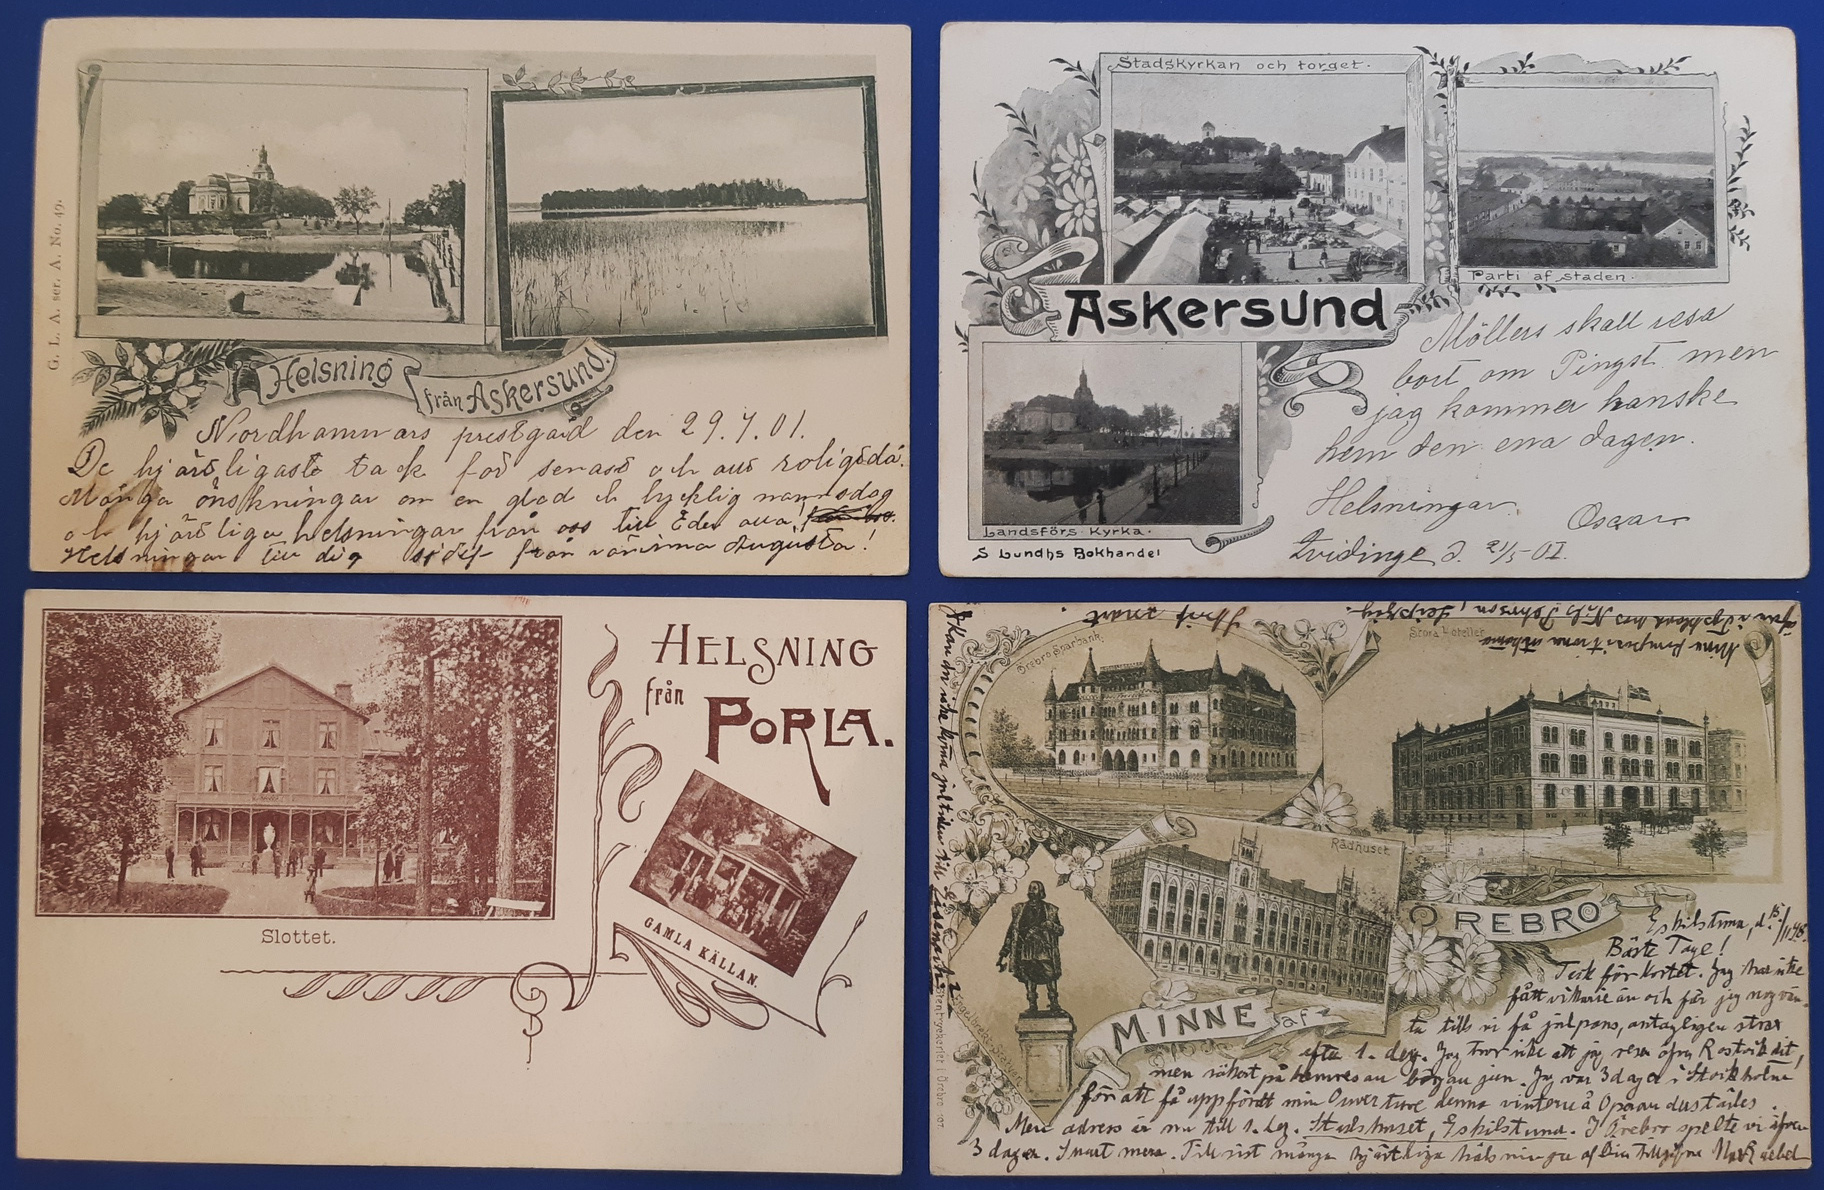 G. L. A. ser. A. No. 49.
Helsning
från Askersund.
Nordhammars prestgård den 29.7.01.
De hjärtligaste tack för senast och allt roligt då.
Många önskningar om en glad och lycklig namnsdag
och hjärtliga helsningar från oss till Eder alla!
Helsningar till dig från vännina Augusta!
Stadskyrkan och torget.
Parti af staden.
Askersund
Landsförs. Kyrka.
S Lundhs Bokhandel
Möllers skall resa
bort om Pingst men
jag kommer kanske
hem den ena dagen.
Helsningar
Oscar
Qvidinge d. 21/5-01.
Helsning
från
Porla.
Slottet.
Gamla Källan.
Skrif snart.
Örebro Sparbank.
Stora Hotellet
Rådhuset
Örebro
Minne af
Engelbrektsstatyn
Stentryckeriet i Örebro
Eskilstuna, d. 15/11 98.
Bäste Tage!
Tack för kortet. Jag har icke
fått vikarie än och får jag nog vän-
ta tills vi få julpans, antagligen strax
efter 1. dez. Jag tror icke att jag reser öfver Rostock dit,
men säkert på hemresan början jan. Jag var 3 dagar i Stockholm
för att få uppfördt min Ouverture denna vinter å Operan dustädes.
Men adress är nu till 1. dez. Stadshuset, Eskilstuna. I Örebro spelte vi äfven
3 dagar. Snart mera. Till sist många hjärtliga hälsningar af Din tillgifne